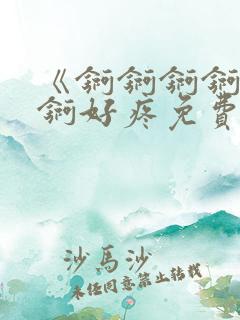 《锕锕锕锕
锕好疼免費
沙馬沙
未经同意禁止转载